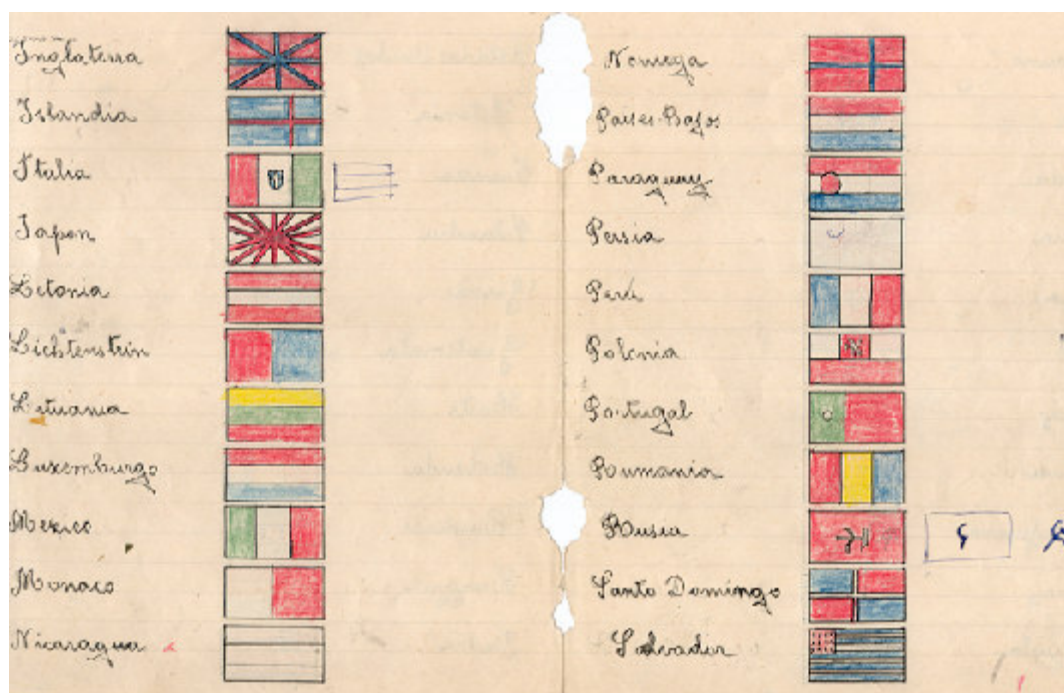 Inglaterra
Islandia
Italia
Japon
Letonia
Lichtenstein
Lituania
Luxemburgo
Mexico
Monaco
Nicaragua
Noruega
Paises-Bajos
Paraguay
Persia
Perú
Polonia
Portugal
Rumania
Rusia
Santo Domingo
Salvador